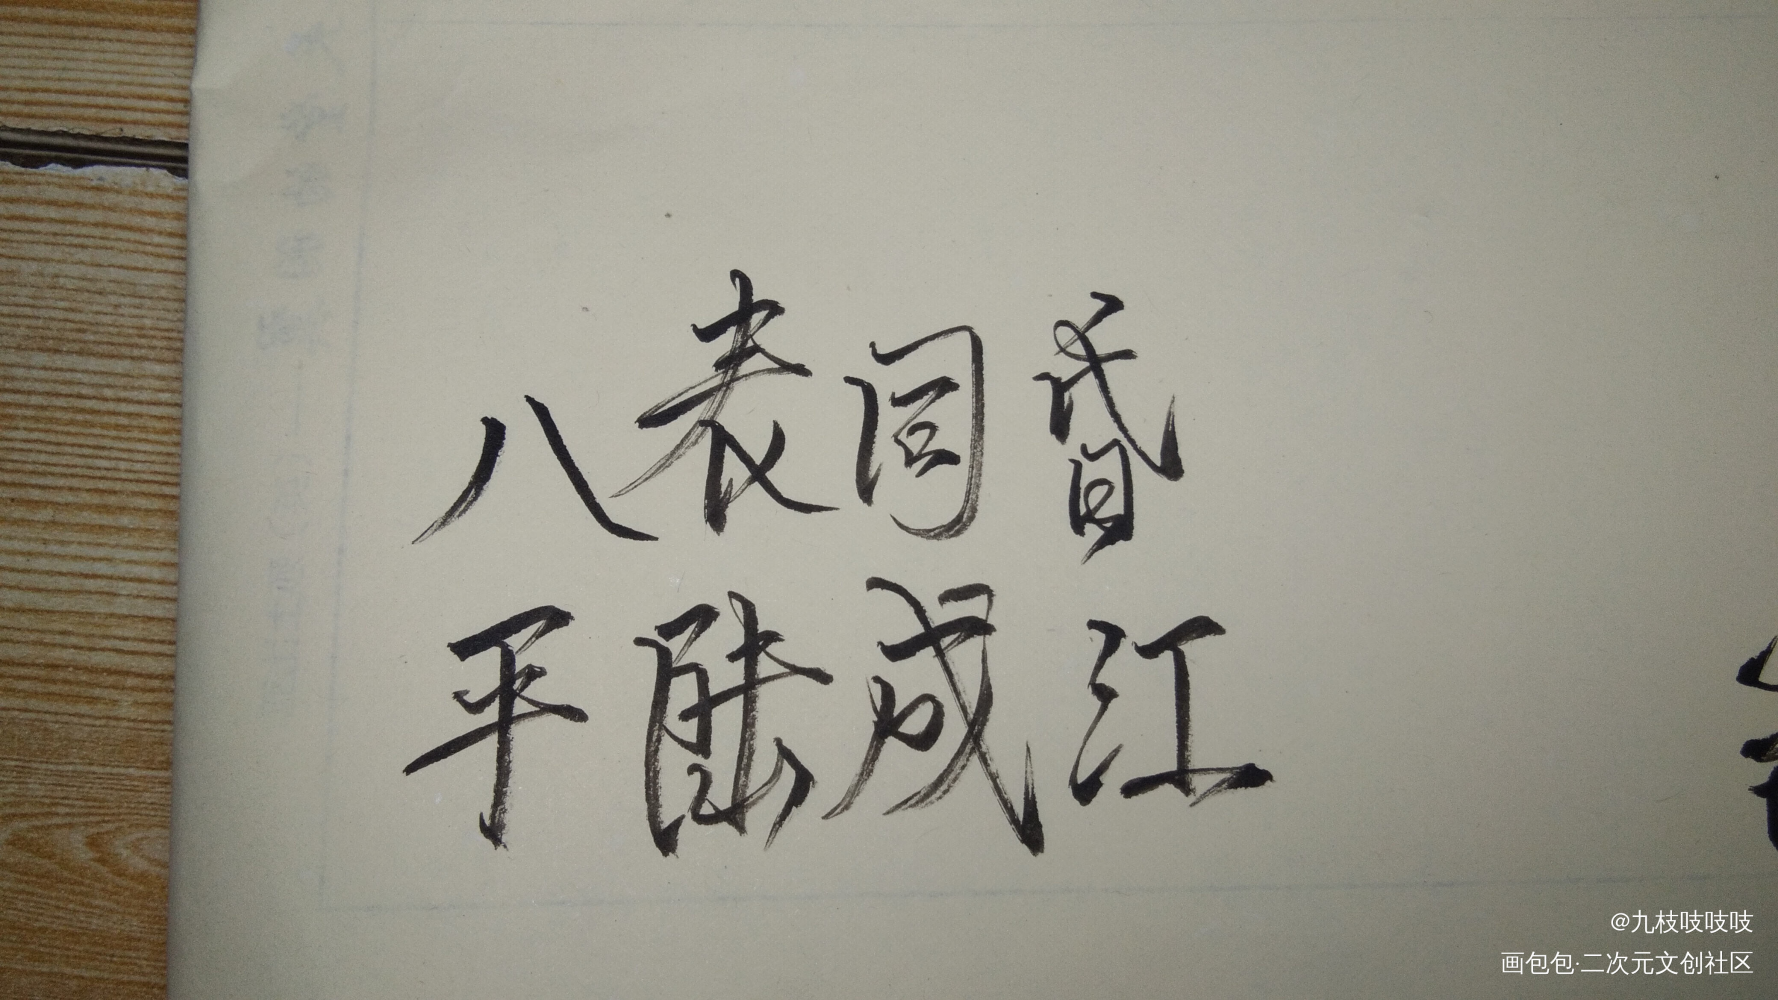 八表同昏
平陆成江
@九枝吱吱吱
画包包·二次元文创社区